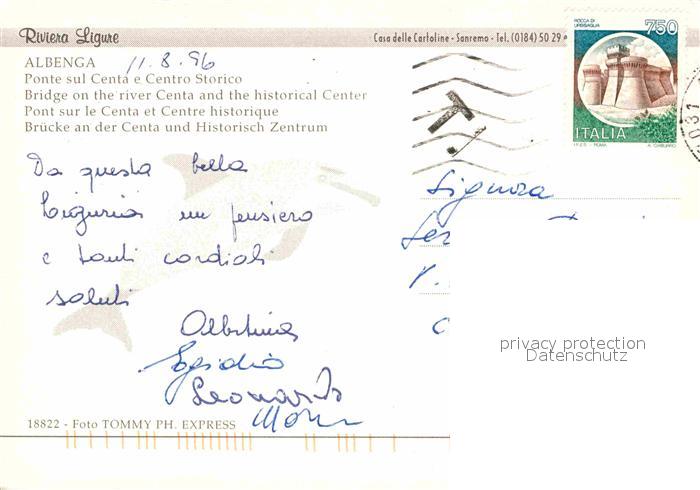 Riviera Ligure
Casa delle Cartoline - Sanremo - Tel. (0184) 50 29
ROCCA DI URBISAGLIA
750
ALBENGA 11.8.96
Ponte sul Centa e Centro Storico
Bridge on the river Centa and the historical Center
Pont sur le Centa et Centre historique
Brücke an der Centa und Historisch Zentrum
ITALIA
I.P.Z.S. - ROMA
Da questa bella
Liguria un pensiero
e tanti cordiali
saluti
Signora
Albertina
Egidio
Leonardo
privacy protection
Datenschutz
18822 - Foto TOMMY PH. EXPRESS